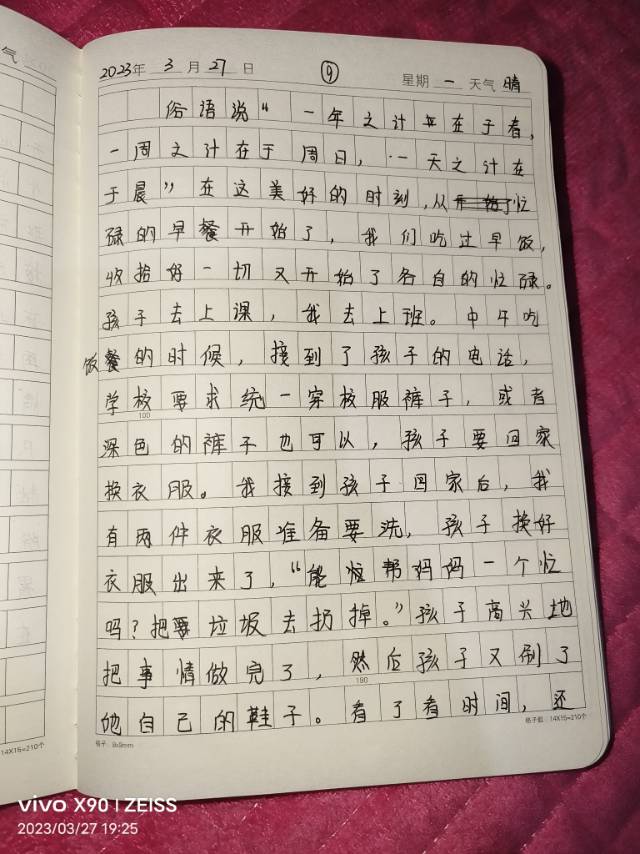 气
2023年 3 月 27 日 ⑨ 星期 一 天气 晴
俗语说“一年之计在于春,
一周之计在于周日,一天之计在
于晨”在这美好的时刻,从忙
碌的早餐开始了,我们吃过早饭,
收拾好一切又开始了各自的忙碌。
孩子去上课,我去上班。中午吃
饭餐的时候,接到了孩子的电话,
学校要求统一穿校服裤子,或者
100
深色的裤子也可以,孩子要回家
换衣服。我接到孩子回家后,我
有两件衣服准备要洗,孩子换好
衣服出来了,“能忙帮妈妈一个忙
吗?把要垃圾去扔掉。”孩子高兴地
把事情做完了,然后孩子又刷了
180
他自己的鞋子。看了看时间,还
14X15=210个
格子:9x9mm
格子数:14X15=210个
vivo X90 | ZEISS
2023/03/27 19:25